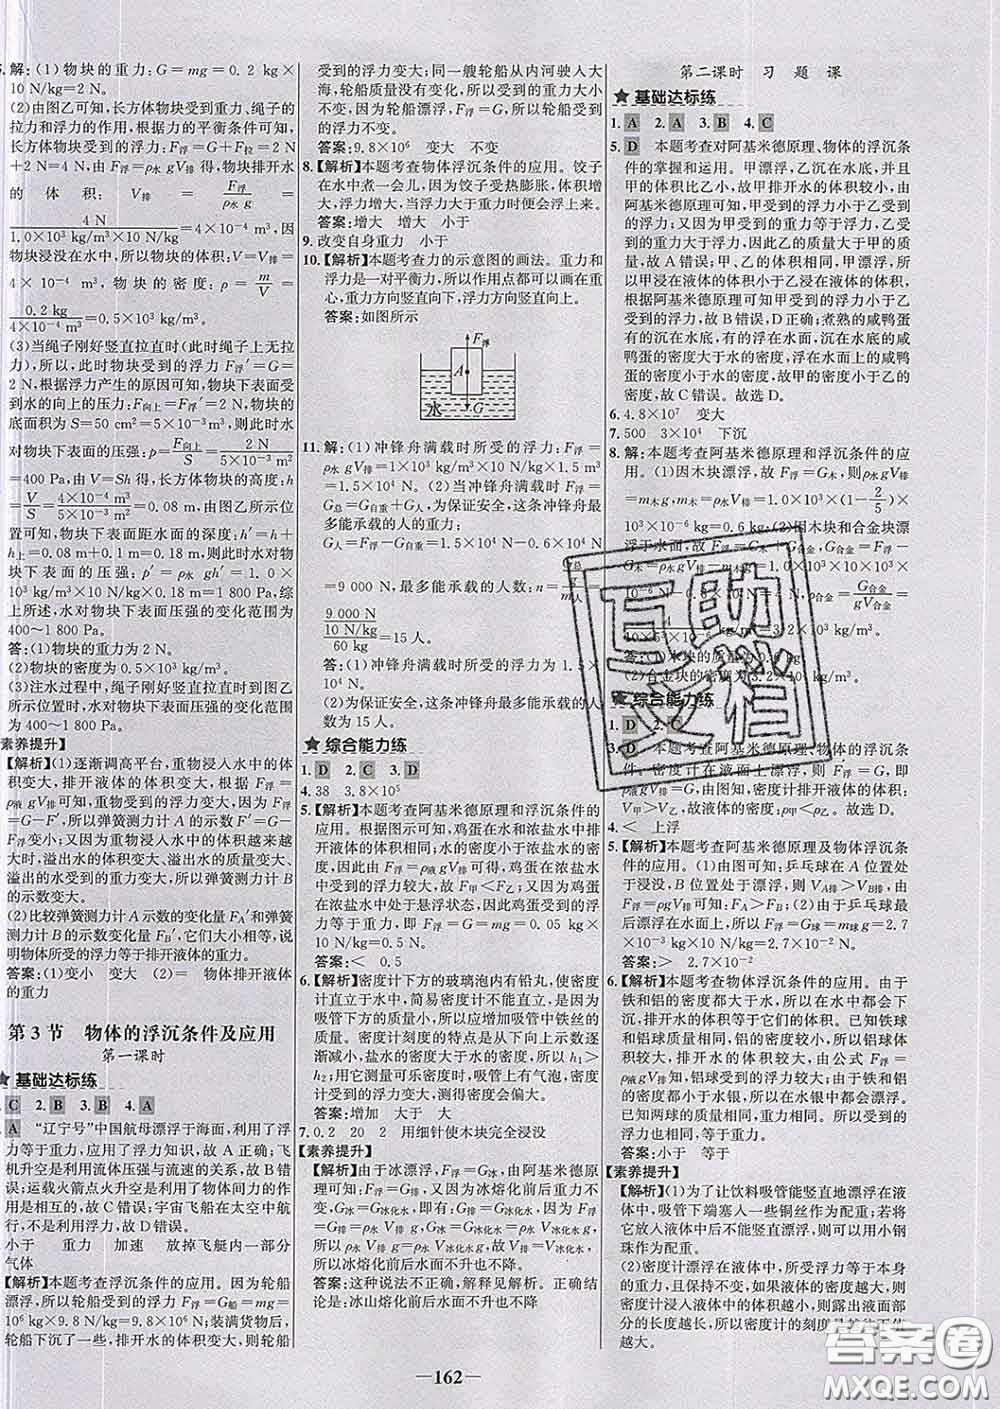 5.解:(1)物块的重力:G=mg=0.2 kg×
10 N/kg=2 N。
(2)由图乙可知,长方体物块受到重力、绳子的
拉力和浮力的作用,根据力的平衡条件可知,
长方体物块受到的浮力:G浮=G+F拉=2 N
+2 N=4 N,由F浮=ρ水 gV排得,物块排开水
的体积:V排=F浮/(ρ水 g)=
4 N/(1.0×10³ kg/m³×10 N/kg)=4×10⁻⁴ m³,因
物块浸没在水中,所以物块的体积:V=V排=
4×10⁻⁴ m³,物块的密度:ρ=m/V=
0.2 kg/(4×10⁻⁴ m³)=0.5×10³ kg/m³。
(3)当绳子刚好竖直拉直时(此时绳子上无拉
力),所以,此时物块受到的浮力 F浮′=G=
2 N,根据浮力产生的原因可知,物块下表面受
到水的向上的压力:F向上=F浮′=2 N,物块的
底面积为 S=50 cm²=5×10⁻³ m²,则此时水
对物块下表面的压强:p=F向上/S=2 N/(5×10⁻³ m²)
=400 Pa,由V=Sh得,长方体物块的高度:h
=V/S=4×10⁻⁴ m³/(5×10⁻³ m²)=0.08 m,由图乙所示
位置可知,物块下表面距水面的深度:h′=h+
h₁=0.08 m+0.1 m=0.18 m,此时水对物块
下表面的压强:p′=ρ水 gh′=1.0×
10³ kg/m³×10 N/kg×0.18 m=1 800 Pa,综
上所述,水对物块下表面压强的变化范围为
400~1 800 Pa。
答:(1)物块的重力为2 N。
(2)物块的密度为0.5×10³ kg/m³。
(3)注水过程中,绳子刚好竖直拉直时到图乙
所示位置时,水对物块下表面压强的变化范围
为400~1 800 Pa。
素养提升】
【解析】(1)逐渐调高平台,重物浸入水中的体
积变大,排开液体的体积变大,根据 F浮=
ρ液 gV排可知,重物受到的浮力变大,因为F′
=G-F浮,所以弹簧测力计A的示数F′=G-
F浮变小;又因为重物浸入水中的体积越来越
大时,溢出水的体积变大、溢出水的质量变大、
溢出的水受到的重力变大,所以弹簧测力计B
的示数变大。
(2)比较弹簧测力计A示数的变化量FA′和弹簧
测力计B的示数变化量FB′,它们大小相等,说
明物体所受的浮力等于排开液体的重力。
答案:(1)变小 变大 (2)= 物体排开液体
的重力
第3节 物体的浮沉条件及应用
第一课时
★基础达标练
C 2.B 3.B 4.A
A “辽宁号”中国航母漂浮于海面,利用了浮
力等于重力,应用了浮力知识,故A正确;飞
机升空是利用流体压强与流速的关系,故B错
误;运载火箭点火升空是利用了物体间力的作
用是相互的,故C错误;宇宙飞船在太空中航
行,不是利用浮力,故D错误。
小于 重力 加速 放掉飞艇内一部分
气体
【解析】本题考查浮沉条件的应用。因为轮船
漂浮,所以轮船受到的浮力F浮=G船=mg=
10⁶ kg×9.8 N/kg=9.8×10⁶ N;装满货物后,
轮船下沉了一些,排开水的体积变大,则轮船
受到的浮力变大;同一艘轮船从内河驶入大
海,轮船质量没有变化,所以,轮船受到的重力
不变;因为轮船漂浮F浮=G,所以轮船受到的
浮力不变。
答案:9.8×10⁶ 变大 不变
8.【解析】本题考查物体浮沉条件的应用。饺子
在水中煮一会儿,因为饺子受热膨胀,体积增
大,浮力增大,当浮力大于重力时便会浮上来。
答案:增大 增大 小于
9.改变自身重力 小于
10.【解析】本题考查力的示意图的画法。重力和
浮力是一对平衡力,所以作用点都可以画在重
心,重力方向竖直向下,浮力方向竖直向上。
答案:如图所示
F浮
A
水
G
11.解:(1)冲锋舟满载时所受的浮力:F浮=
ρ水 gV排=1×10³ kg/m³×10 N/kg×1.5 m³
=1.5×10⁴ N。(2)当冲锋舟满载时F浮=
G总=G人+G自重,为保证安全,这条冲锋舟最
多能承载的人的重力:
G人=F浮-G自重=1.5×10⁴ N-0.6×10⁴ N
=9 000 N,最多能承载的人数:n=
9 000 N
10 N/kg
60 kg
=15人。
答:(1)冲锋舟满载时所受的浮力为1.5×
10⁴ N。
(2)为保证安全,这条冲锋舟最多能承载的人
数为15人。
★综合能力练
1.D 2.C 3.D
4.38 3.8×10⁵
5.【解析】本题考查阿基米德原理和浮沉条件的
应用。根据图示可知,鸡蛋在水和浓盐水中排
开液体的体积相同;水的密度小于浓盐水的密
度,因此由F浮=ρ液 gV排可知,鸡蛋在水中受
到的浮力较小,即F甲<F乙;又因为鸡蛋在
浓盐水中处于悬浮状态,因此鸡蛋受到的浮
力等于重力,即F浮=G=mg=0.05 kg×
10 N/kg=0.5 N。
答案:< 0.5
6.【解析】密度计下方的玻璃泡内有铅丸,使密
度计直立于水中,简易密度计不能直立,是因为
吸管下方太轻,所以应增加吸管中铁丝的质
量。密度计的特点是从上向下示数
逐渐减小,盐水的密度大于水的密度,故h₁>
h₂;用了可乐密度后,吸管上有气泡,密度
计受到的浮力变大,测得密度会偏大。
答案:增加 大于 大
7.0.2 20 2 用细针使木块完全浸没
【素养提升】
【解析】由于冰漂浮,F浮=G冰,由阿基米德原
理可知F浮=G排,又因为冰熔化后质量不变,
所以G冰=G冰化水,即G排=G冰化水,因为
G排=ρ水 gV排,G冰化水=ρ水V冰化水g,
所以ρ水 gV排=ρ水V冰化水g,即V排=V冰化水。
答案:这种说法不正确,解释见解析。正确的
结论是:冰山熔化前后水面不升也不降
第二课时 习题课
★基础达标练
1.A 2.A 3.B 4.C
5.D 本题考查对阿基米德原理、物体的浮沉条
件的掌握和运用。甲漂浮,乙沉在水底,并且
甲的体积比乙小,故甲排开水的体积较小,由
阿基米德原理可知,甲受到的浮力小于乙受到
的浮力;又因为甲受到的重力等于浮力,乙受
到的重力大于浮力,所以乙的质量大于甲的质
量,故A错误;甲、乙的体积相同,甲漂浮,
所以甲浸在液体的体积小于浸在液体的体积,
根据阿基米德原理可知,甲受到的浮力小于乙
受到的浮力,故B错误,D正确;煮熟的咸鸭蛋
有的浮在水面,有的沉在水底,沉在水底的咸鸭
蛋的密度大于水的密度,浮在水面上的咸鸭
蛋的密度小于水的密度,故甲的密度小于乙的密
度,故C错误。故选D。
6.4.8×10⁷ 变大
7.500 3×10⁴ 下沉
8.解:本题考查阿基米德原理和浮沉条件的应
用。(1)因木块漂浮,故F浮=G木,则ρ水 gV排
=m木g,
×10⁻⁶ kg=0.6 kg。(2)因木块和合金块漂
浮于水面,故
答:(1)木块的质量为0.6 kg。
(2)合金块的密度为3.2×10³ kg/m³。
★综合能力练
1.D 2.C
3.D 本题考查阿基米德原理、物体的浮沉条
件。密度计在液面上漂浮,
V甲>V乙,故液体的密度:ρ甲<ρ乙,故选D。
4.< 上浮
5.【解析】本题考查阿基米德原理及物体浮沉条
件的应用。(1)由图可知,乒乓球在A位置处
于浸没,B位置处于漂浮,则VA排>VB排,由
F浮=ρgV排可知,FA>FB;(2)由于乒乓球最
后漂浮在水面上,所以F浮=G=m球g=2.7
×10⁻³ kg×10 N/kg=2.7×10⁻² N。
答案:> 2.7×10⁻²
6.【解析】本题考查物体浮沉条件的应用。由于
铁和铝的密度都大于水,所以在水中都会下
沉,排开水的体积等于它们的体积。已知实心铁
球和铝球质量相同,并且铁的密度大于铝的密
度,所以铝球的体积较大;由公式F浮=
ρ液gV排知,铝球受到的浮力较大;由于铁和铝
的密度都小于水银,所以在水银中都会漂浮。
已知两球的重力相等,所以所受到的
浮力相同,等于重力。
答案:小于 等于
【素养提升】
【解析】(1)为了让饮料吸管能竖直地漂浮在液
体中,吸管下端塞入一些铜丝作为配重;若将
吸管放入液体中后不能竖直漂浮,可以用小钢
珠作为配重。
(2)密度计漂浮在液体中,所受的浮力等于本身的
重力,且保持不变,如果液体的密度越大,则密
度计排开液体的体积越小,则露出液面部分
的体积越大,所以密度计的刻度是越往下值
越大。
—162—
互助文档
答案圈
MXQE.COM